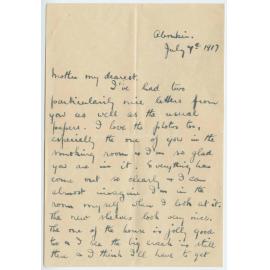 Aboukir.
July 7th 1917
Mother my dearest,
I've had two
particularly nice letters from
you as well as the usual
papers. I love the photos too,
especially the one of you in the
smoking room & I'm so glad
you are in it. Everything has
come out so clearly & I can
almost imagine I'm in the
room myself when I look at it.
The new shelves look very nice.
The one of the house is jolly good
too & I see the big crack is still
there & I think I'll have to get